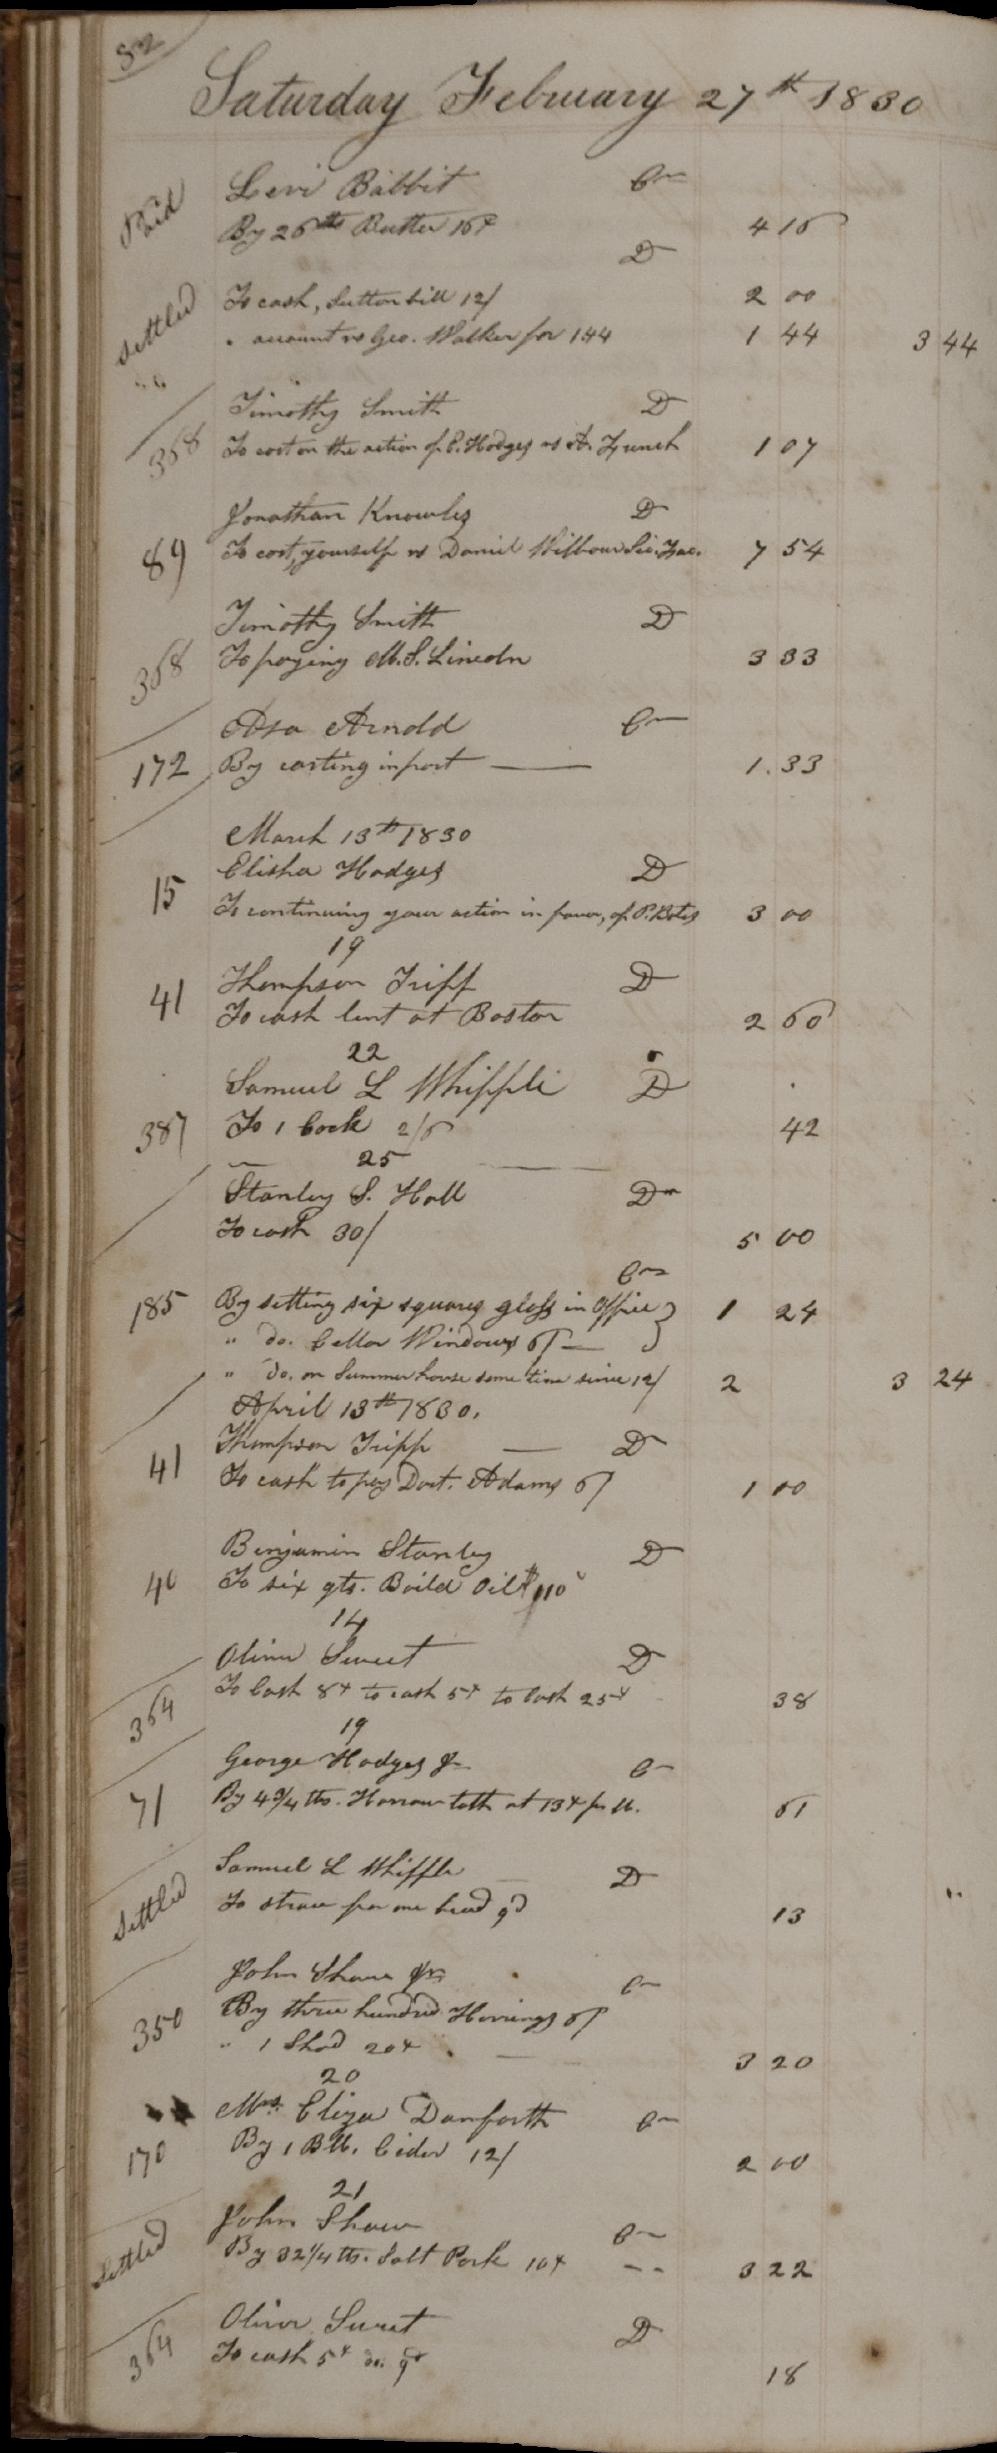 82
Saturday February 27th 1830
Paid
Levi Babbit Cr
By 26 lbs Butter 16¢ 4 16
Dr
Settled To cash, Sutton bill 12/ 2 00
" account vs Geo. Walker for 144 1 44 3 44
Timothy Smith Dr
368 To cost on the action of E. Hodges vs A. French 1 07
Jonathan Knowles Dr
89 To cost, yourself vs Daniel Wilbour Sci. Fac. 7 54
Timothy Smith Dr
368 To paying M. S. Lincoln 3 33
Asa Arnold Cr
172 By carting in part 1.33
March 13th 1830
15 Elisha Hodges Dr
To continuing your action in favor, of P. 3 00
19
41 Thompson Tripp Dr
To cash lent at Boston 2 60
22
Samuel L Whipple Dr
387 To 1 Cock 2/6 42
25
Stanley S. Hall Dr
To cash 30/ 5 00
Cr
185 By setting six squares glass in Office } 1 24
" do. Cellar Windows 6/ }
" do. on Summer house some time since 12/ 2 3 24
April 13th 1830.
41 Thompson Tripp Dr
To cash to pay Doct. Adams 6/ 1 00
Benjamin Stanley Dr
40 To six qts. Boild Oil $110
14
Oliver Sweet Dr
364 To Cash 8¢ to cash 5¢ to Cash 25¢ 38
19
George Hodges Jr Cr
71 By 4 3/4 lbs. Harrow teeth at 13¢ pr lb. 61
Samuel L Whipple Dr
Settled To straw for one bed 9d 13
John Shaw Jr. Cr
350 By three hundred Herrings 6/
" 1 Shad 20¢ 3 20
20
Mrs. Eliza Danforth Cr
170 By 1 Bbl. Cider 12/ 2 00
21
John Shaw Cr
Settled By 32 1/4 lbs. Salt Pork 10¢ 3 22
Oliver Sweet Dr
364 To cash 5¢ do. 9d 18